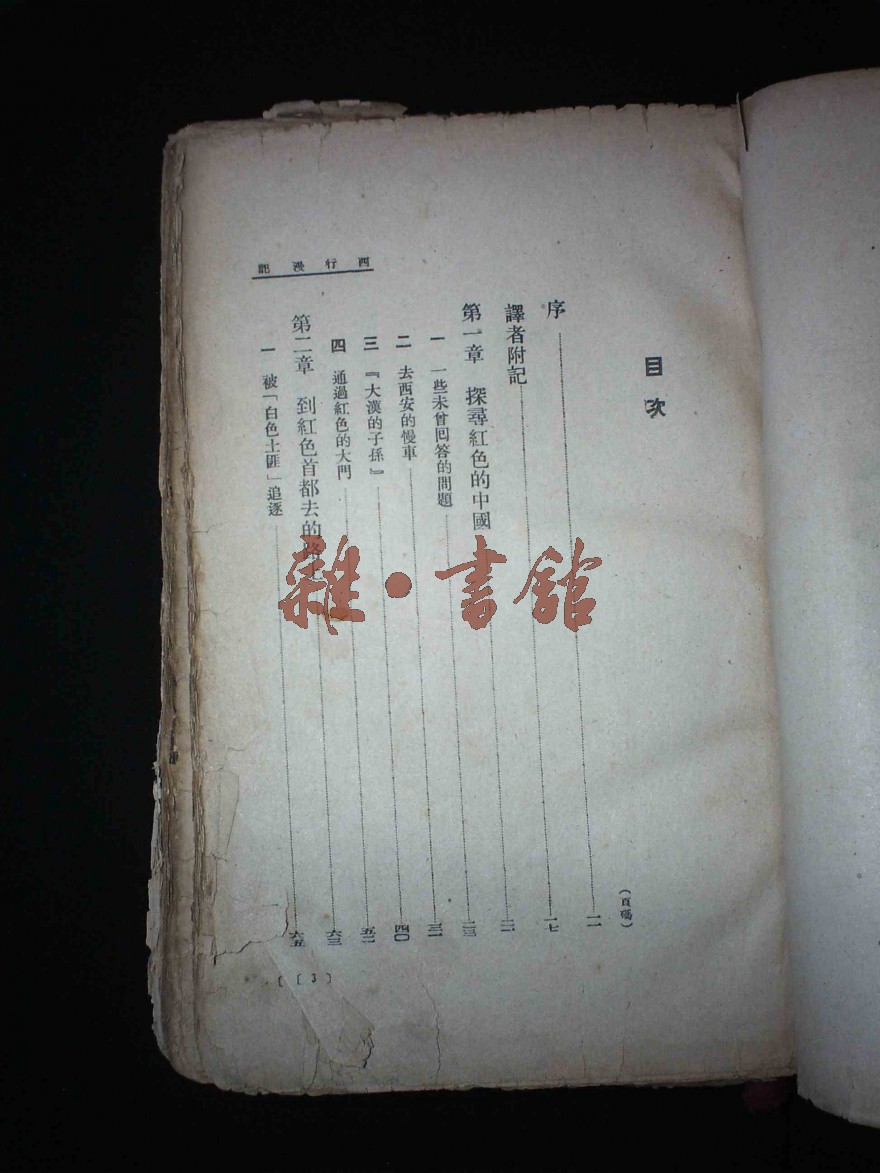 西行漫記
目次
(頁碼)
序 一一
譯者附記 一七
第一章 探尋紅色的中國 二一
一 一些未曾回答的問題 二三
二 去西安的慢車 三一
三 『大漢的子孫』 四〇
四 通過紅色的大門 五二
第二章 到紅色首都去的路上 六三
一 被「白色土匪」追逐 六五
〔3〕
雜·書館